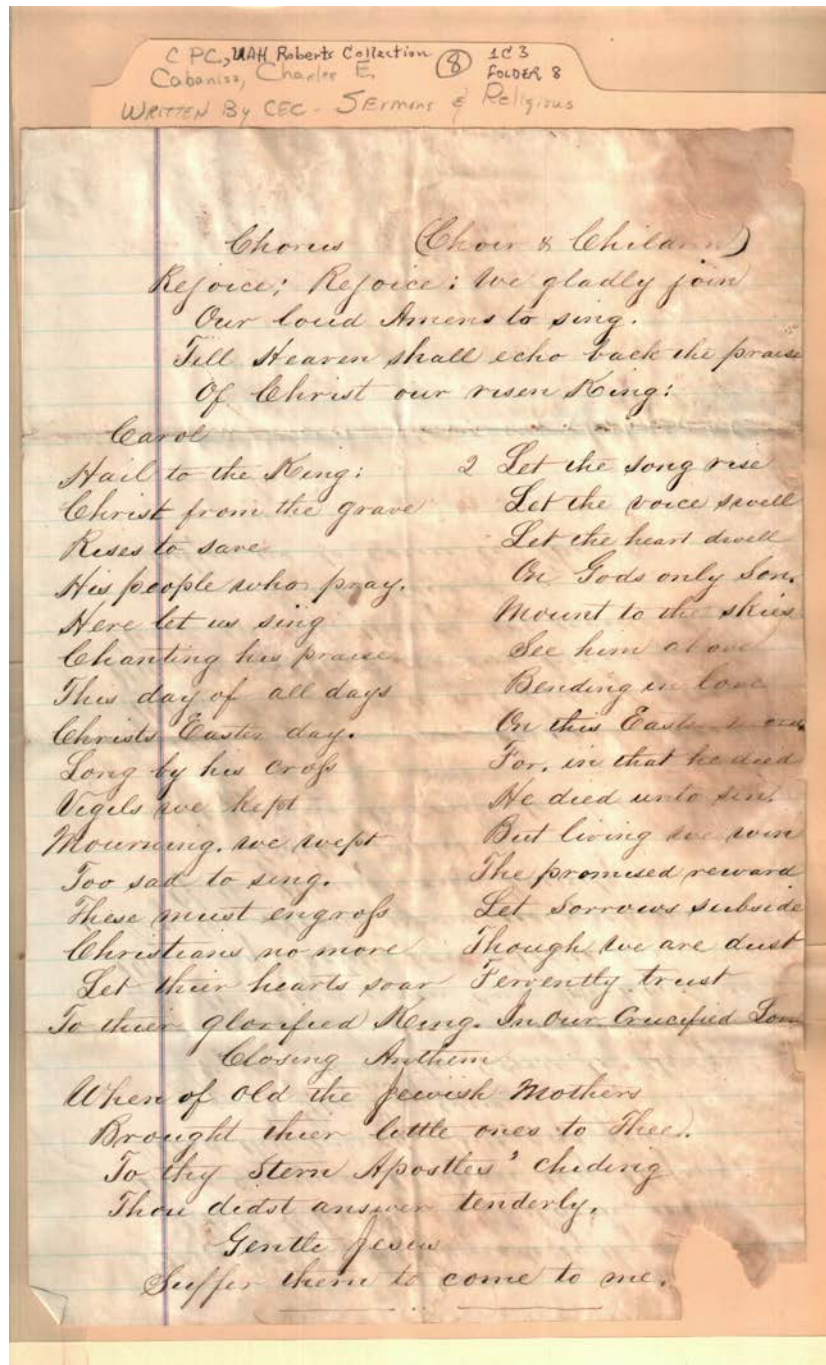 C PC, UAH Roberts Collection 8 1C3
Cabaniss, Charles E. FOLDER 8
WRITTEN By CEC - SErmons & Religious
Chorus (Choir & Children)
Rejoice; Rejoice: We gladly join
Our loud Amens to sing.
Till Heaven shall echo back the praise
Of Christ our risen King:
Carol
Hail to the King:
Christ from the grave
Rises to save
His people who pray.
Here let us sing
Chanting his praise
This day of all days
Christs Easter day.
Long by his cross
Vigels we kept
Mourning, we wept
Too sad to sing.
These must engross
Christians no more
Let their hearts soar
To thier glorified King.
2 Let the song rise
Let the voice swell
Let the heart dwell
On Gods only Son.
Mount to the skies
See him above
Bending in love
On this Easter
For, in that he died
He died unto sin.
But living we win
The promised reward
Let Sorrows subside
Though we are dust
Fervently trust
In Our Crucified
Closing Anthem
When of old the Jewish Mothers
Brought thier little ones to Thee.
To thy Stern Apostles' chiding
Thou didst answer tenderly.
Gentle Jesus
Suffer them to come to me.